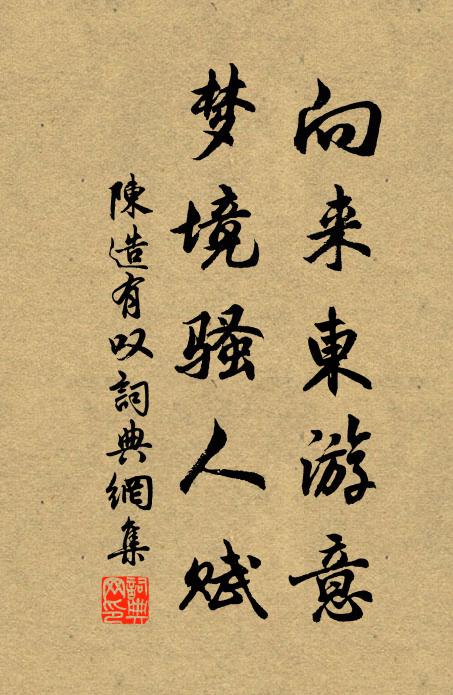 向来東游意
梦境骚人赋
陳造有叹詞典網集
詞典网印